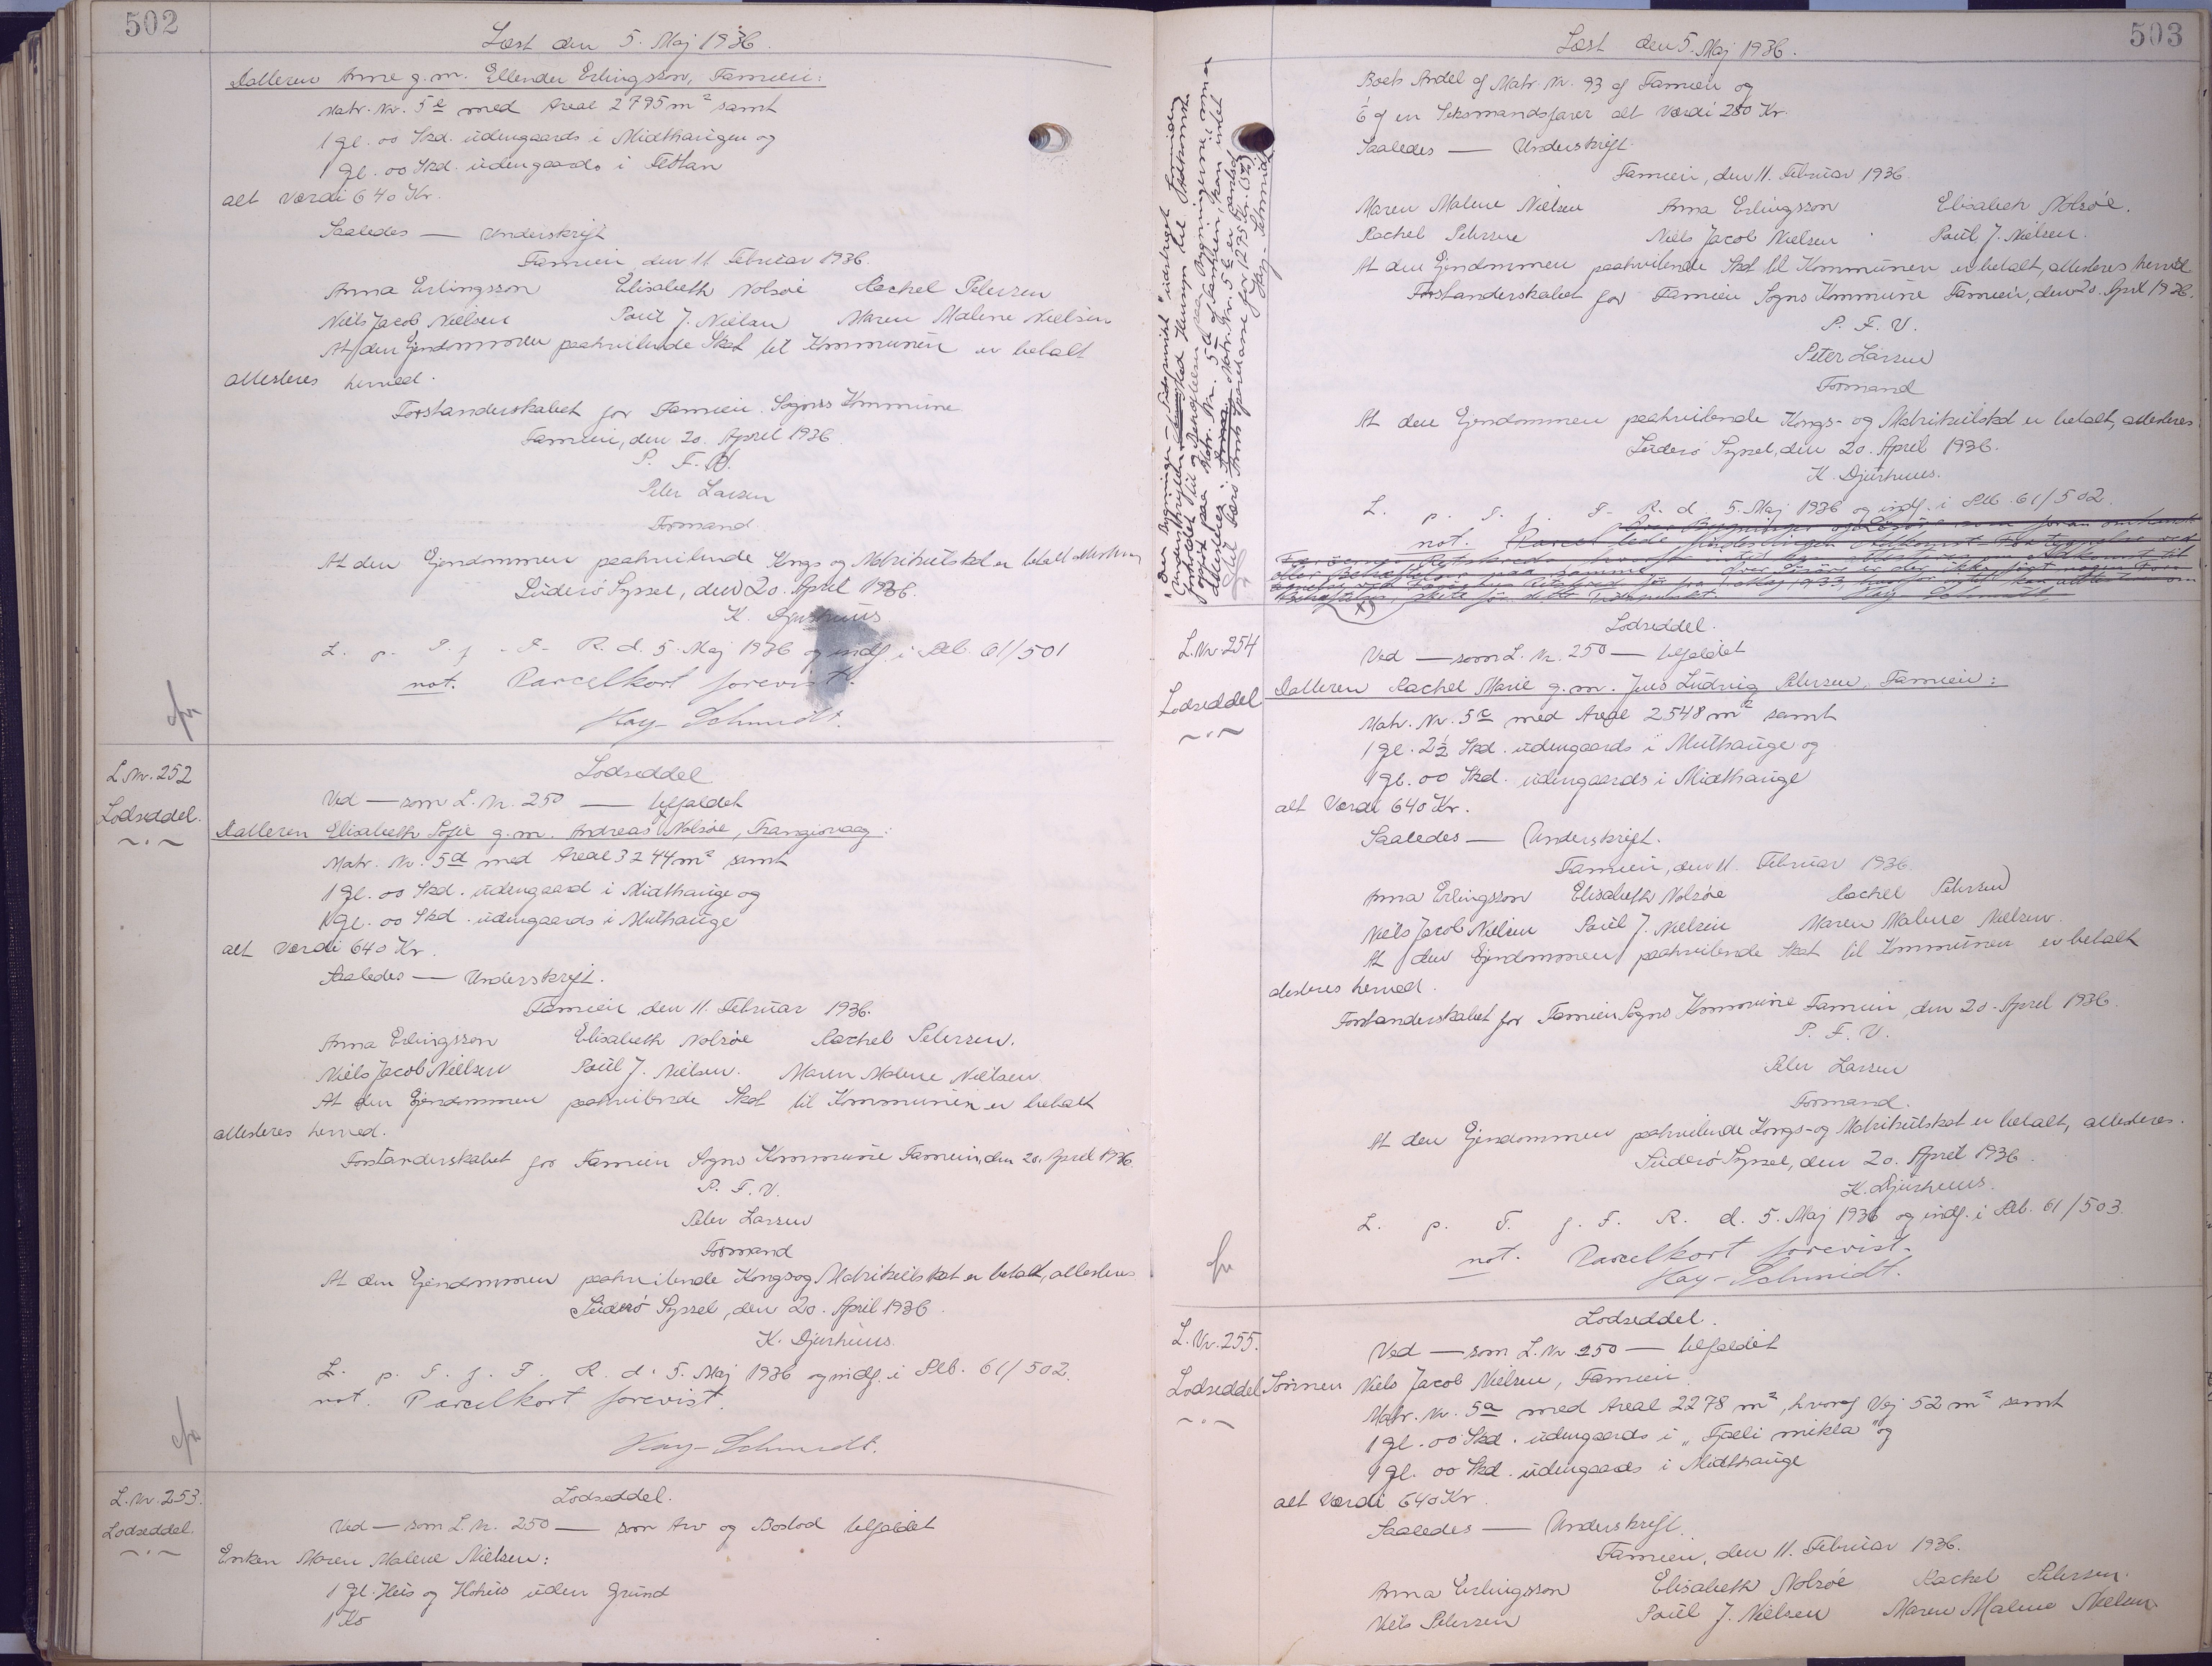 502
Læst den 5. Maj 1936.
Datteren Anne g.m. Ellender Erlingsson, Famien:
Matr. Nr. 5e med Areal 2795 m² samt
1 gl. 00 Skd. udengaards i Midthaugen og
1 gl. 00 Skd. udengaards i
alt Værdi 640 Kr.
Saaledes — Underskrift
Famien, den 11. Februar 1936.
Anna Erlingsson Elisabeth Nolsøe Rachel Petersen
Niels Jacob Nielsen Poul J. Nielsen Maren Malene Nielsen
At den Ejendommen paahvilende Skat til Kommunen er betalt
attesteres herved.
Forstanderskabet for Famien Sogns Kommune
Famien, den 20. April 1936.
P. F. V.
Peter Larsen
Formand
At den Ejendommen paahvilende Kongs og Matrikulskat er betalt attesteres
Suderø Syssel, den 20. April 1936.
K. Djurhuus
L. p. T. f. F. R. d. 5. Maj 1936 og indf. i Pcb. 61/501
not. Parcelkort forevist.
Kay-Schmidt.
L.Nr. 252
Lodseddel.
Lodseddel
Ved — som L. Nr. 250 — tilfaldet
Datteren Elisabeth Sofie g.m. Andreas Nolsøe, Trangisvaag:
Matr. Nr. 5d med Areal 3244 m² samt
1 gl. 00 Skd. udengaard i Midthauge og
1 gl. 00 Skd. udengaards i Muthauge
alt Værdi 640 Kr.
Saaledes — Underskrift.
Famien, den 11. Februar 1936.
Anna Erlingsson Elisabeth Nolsøe Rachel Petersen.
Niels Jacob Nielsen Poul J. Nielsen. Maren Malene Nielsen
At den Ejendommen paahvilende Skat til Kommunen er betalt
attesteres herved.
Forstanderskabet for Famien Sogns Kommune Famien, den 20. April 1936.
P. F. V.
Peter Larsen
Formand
At den Ejendommen paahvilende Kongs og Matrikulskat er betalt, attesteres
Suderø Syssel, den 20. April 1936.
K. Djurhuus.
L. p. T. f. F. R. d. 5. Maj 1936 og indf. i Pcb. 61/502.
not. Parcelkort forevist.
Kay-Schmidt.
L. Nr. 253.
Lodseddel.
Lodseddel.
Ved — som L. Nr. 250 — som Arv og Boslod tilfaldet
Enken Maren Malene Nielsen:
1 gl. Hus og Hohus uden Grund
1 Ko
503
Læst den 5. Maj 1936.
Boets Andel af Matr. Nr. 93 af Famien og
1/6 af en Seksmandsfarer alt Værdi 280 Kr.
Saaledes — Underskrift.
Famien, den 11. Februar 1936
Maren Malene Nielsen Anna Erlingsson Elisabeth Nolsøe.
Rachel Petersen Niels Jacob Nielsen Poul J. Nielsen.
At den Ejendommen paahvilende Skat til Kommunen er betalt, attesteres herved
Forstanderskabet for Famien Sogns Kommune Famien, den 20. April 1936.
P. F. V.
Peter Larsen
Formand
At den Ejendommen paahvilende Kongs- og Matrikulskat er betalt, attesteres
Suderø Syssel, den 20. April 1936.
K. Djurhuus.
L. p. T. f. F. R. d. 5. Maj 1936 og indf. i Pcb. 61/502.
not.
Kay Schmidt
L.Nr. 254
Lodseddel
Lodseddel.
Ved — som L. Nr. 250 — tilfaldet
Datteren Rachel Marie g.m. Jens Ludvig Petersen, Famien:
Matr. Nr. 5c med Areal 2548 m² samt
1 gl. 2½ Skd. udengaards i Muthauge og
1 gl. 00 Skd. udengaards i Midthauge
alt Værdi 640 Kr.
Saaledes — Underskrift.
Famien, den 11. Februar 1936.
Anna Erlingsson Elisabeth Nolsøe Rachel Petersen
Niels Jacob Nielsen Poul J. Nielsen Maren Malene Nielsen.
At den Ejendommen paahvilende Skat til Kommunen er betalt
attesteres herved.
Forstanderskabet for Famien Sogns Kommune Famien, den 20. April 1936.
P. F. V.
Peter Larsen
Formand.
At den Ejendommen paahvilende Kongs- og Matrikulskat er betalt, attesteres.
Suderø Syssel, den 20. April 1936.
K. Djurhuus.
L. p. T. f. F. R. d. 5. Maj 1936 og indf. i Pcb. 61/503.
not. Parcelkort forevist.
Kay-Schmidt.
L. Nr. 255.
Lodseddel
Lodseddel.
Ved — som L. Nr. 250 — tilfaldet
Sønnen Niels Jacob Nielsen, Famien
Matr. Nr. 5a med Areal 2278 m², hvoraf Vej 52 m² samt
1 gl. 00 Skd. udengaards i „Fjæli mikla" og
1 gl. 00 Skd. udengaards i Midthauge
alt Værdi 640 Kr.
Saaledes — Underskrift.
Famien, den 11. Februar 1936.
Anna Erlingsson Elisabeth Nolsøe Rachel Petersen.
Niels Petersen Poul J. Nielsen Maren Malene Nielsen.